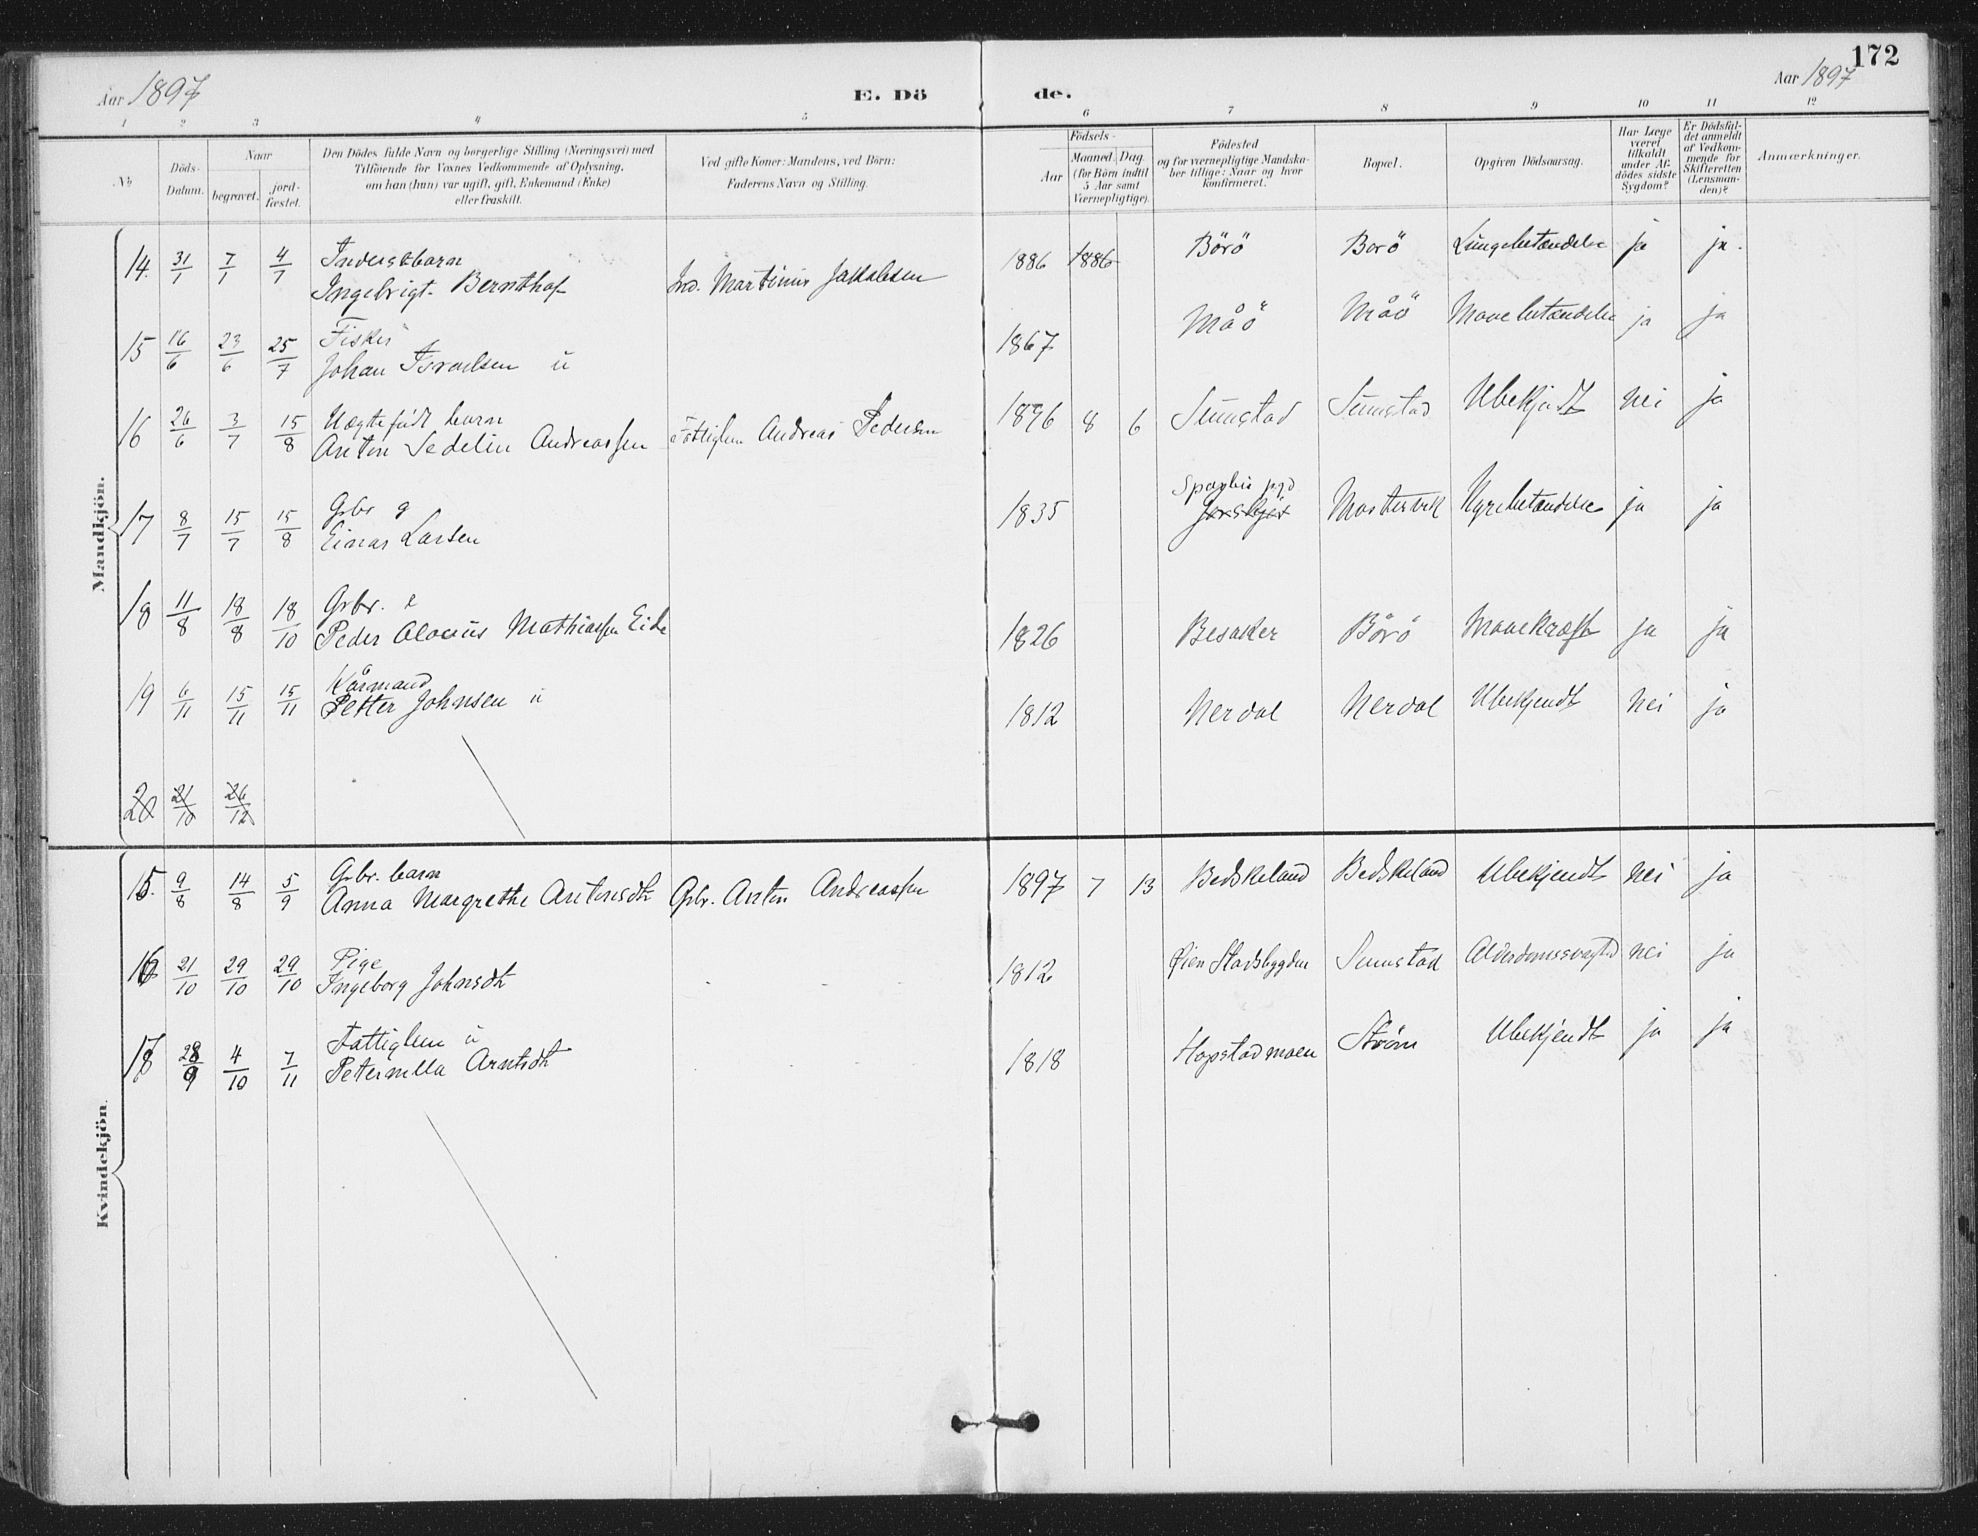 172
Aar 1897
E. Dö
de.
Aar 1897
1 2 3 4 5 6 7 8 9 10 11 12
No
Döds-Datum.
Naar
begravet.
jord-fæstet.
Den Dödes fulde Navn og borgerlige Stilling (Næringsvei) med
Tilföiende for Voxnes Vedkommende af Oplysning,
om han (hun) var ugift, gift, Enkemand (Enke)
eller fraskilt.
Ved gifte Koner: Mandens, ved Börn:
Faderens Navn og Stilling.
Födsels-
Aar
Maaned. Dag.
(for Börn indtil
5 Aar samt
Værnepligtige).
Födested
og for værnepligtige Mandska-
ber tillige: Naar og hvor
konfirmeret.
Bopæl.
Opgiven Dödsaarsag.
Har Læge
været
tilkaldt
under Af-
dödes sidste
Sygdom?
Er Dödsfal-
det anmeldt
af Vedkom-
mende for
Skifteretten
(Lensman-
den)?
Anmærkninger.
Mandkjön.
14. 31/1 7/1 4/7 Inderstbarn
Ingebrigt Bernthof Ind. Martinus Jakobsen 1886 1886 Börö Borö Lungebetændelse ja ja.
15 16/6 23/6 25/7 Fisker
Johan Israelsen u 1867 Måö Måö Mavebetændelse ja ja
16 26/6 3/7 15/8 Uægtefödt barn
Anton Sedelin Andreassen Fattiglem Andreas Pedersen 1896 8 6 Sumstad Sumstad Ubekjendt nei ja
17 8/7 15/7 15/8 Gbr g
Einar Larsen 1835 pgd Mastervik Nyrebetændelse ja ja
18 11/8 18/8 18/10 Gbr. e
Peder Mathiassen Eide 1826 Besaker Börö Mavekræft ja ja
19 6/11 15/11 15/11 Kårmand
Petter Johnsen u 1812 Nerdal Nerdal Ubekjendt nei ja
20 21/10 26/12
Kvindekjön.
15. 9/8 14/8 5/9 Gbr. barn
Anna Margrethe Antonsdtr Gbr. Anton Andreassen 1897 7 13 Bedskeland Bedskeland Ubekjendt nei ja
16 21/10 29/10 29/10 Pige
Ingeborg Johnsdtr 1812 Øien Stadsbygden Sumstad Alderdomssvaghed nei ja
17 28/9 4/10 7/11 Fattiglem u
Peternella Arntsdtr 1818 Hopstadmoen Ström Ubekjendt ja ja